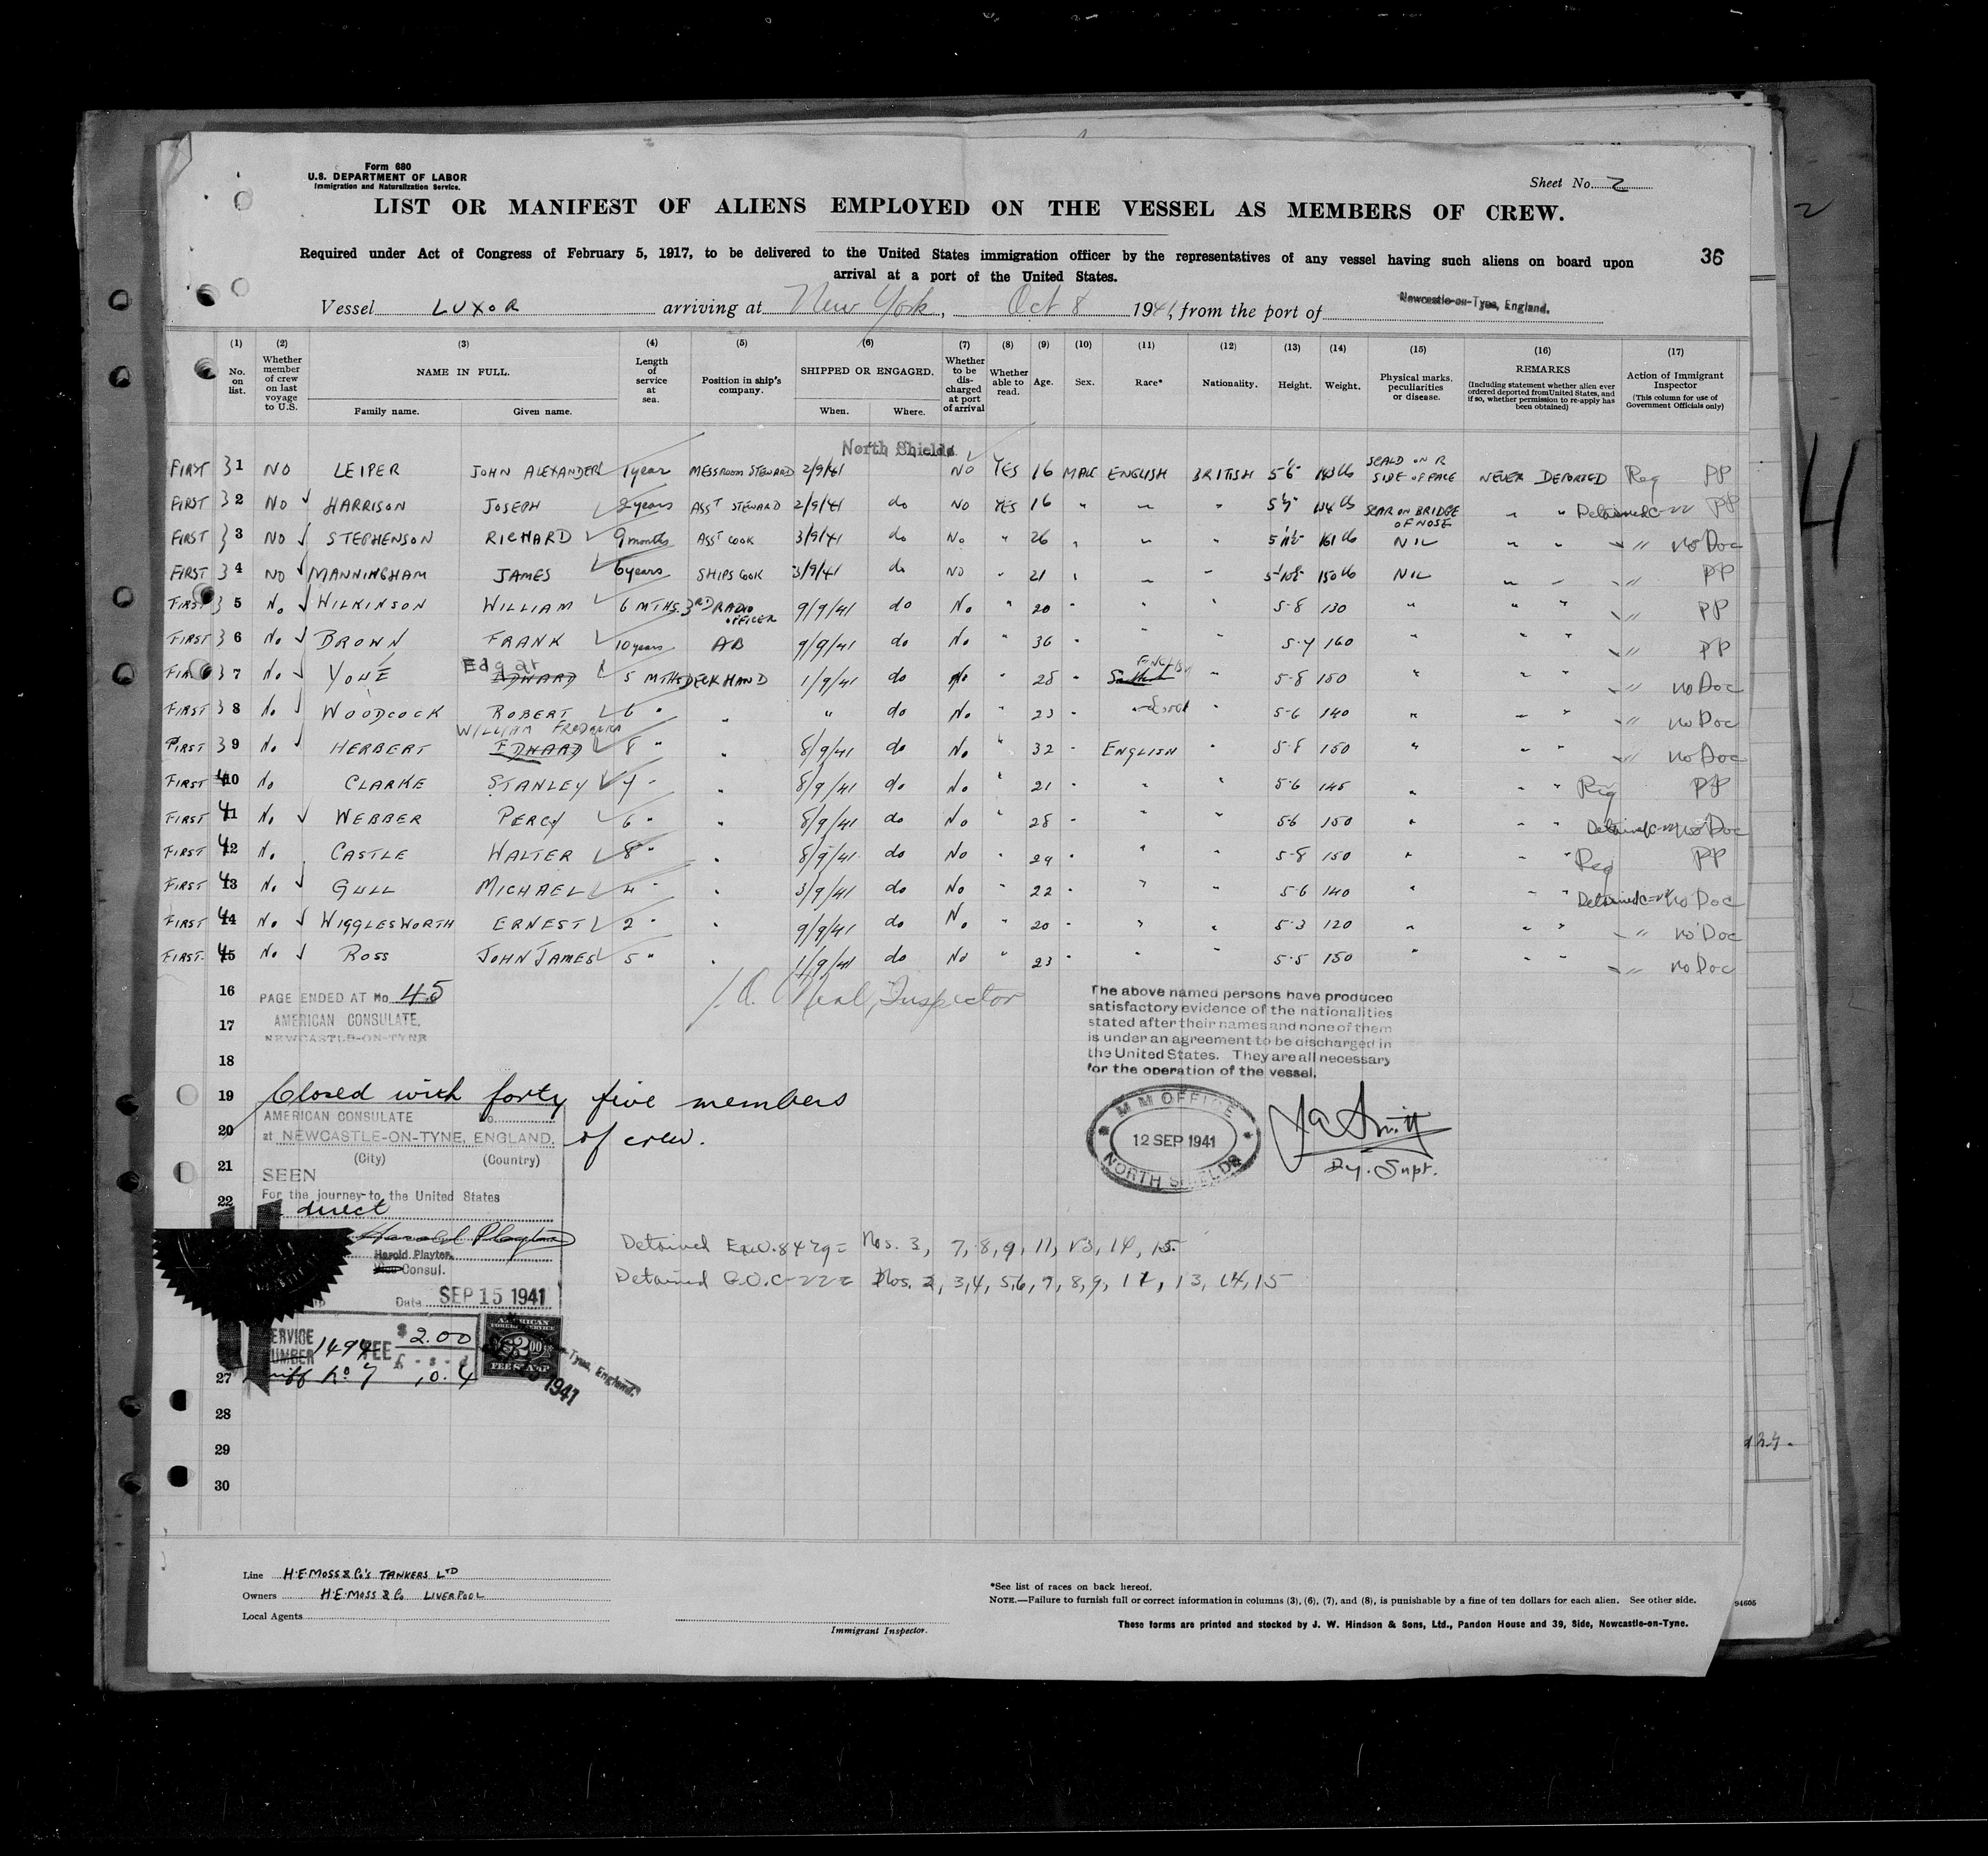 Form 680
U.S. DEPARTMENT OF LABOR
Immigration and Naturalization Service.
Sheet No. 2
LIST OR MANIFEST OF ALIENS EMPLOYED ON THE VESSEL AS MEMBERS OF CREW.
Required under Act of Congress of February 5, 1917, to be delivered to the United States immigration officer by the representatives of any vessel having such aliens on board upon
arrival at a port of the United States.
36
Vessel LUXOR arriving at New York, Oct 8 1941, from the port of Newcastle-on-Tyne, England.
(1) No. on list. (2) Whether member of crew on last voyage to U.S. (3) NAME IN FULL. Family name. Given name. (4) Length of service at sea. (5) Position in ship's company. (6) SHIPPED OR ENGAGED. When. Where. (7) Whether to be discharged at port of arrival (8) Whether able to read. (9) Age. (10) Sex. (11) Race* (12) Nationality. (13) Height. (14) Weight. (15) Physical marks, peculiarities or disease. (16) REMARKS (Including statement whether alien ever ordered deported from United States, and if so, whether permission to re-apply has been obtained) (17) Action of Immigrant Inspector (This column for use of Government Officials only)
North Shields
FIRST 31 NO LEIPER JOHN ALEXANDER 1 year MESSROOM STEWARD 2/9/41 NO YES 16 MALE ENGLISH BRITISH SCALD ON R SIDE OF FACE NEVER DEPORTED Reg PP
FIRST 32 NO HARRISON JOSEPH 2 years ASST STEWARD 2/9/41 do NO YES 16 " " " SCAR ON BRIDGE OF NOSE " " Detained C-22 PP
FIRST 33 NO STEPHENSON RICHARD 9 months ASST COOK 3/9/41 do No " 26 " " " 161 lb NIL " " " no Doc
FIRST 34 NO MANNINGHAM JAMES 6 years SHIPS COOK 3/9/41 do NO " 21 " " " 150 lb NIL " " " PP
FIRST 35 No WILKINSON WILLIAM 6 MTHS. 3RD RADIO OFFICER 9/9/41 do No " 20 " " " 5-8 130 " " " " PP
FIRST 36 No BROWN FRANK 10 years AB 9/9/41 do No " 36 " " " 160 " " " " PP
FIRST 37 No Edgar EDWARD 5 MTHS DECK HAND 1/9/41 do No " 28 " ENGLISH " 5-8 150 " " " " no Doc
FIRST 38 No WOODCOCK ROBERT 6 " " " do No " 23 " " 5-6 140 " " " " no Doc
FIRST 39 No HERBERT WILLIAM FREDERICK EDWARD 8 " " 8/9/41 do No " 32 " ENGLISH " 5-8 150 " " " " no Doc
FIRST 40 No CLARKE STANLEY " " 8/9/41 do No " 21 " " " 5-6 145 " " " Reg PP
FIRST 41 No WEBBER PERCY 6 " " 8/9/41 do No " 28 " " " 5-6 150 " " " Detained C-22 no Doc
FIRST 42 No CASTLE WALTER 8 " " 8/9/41 do No " 29 " " " 5-8 150 " " " Reg PP
FIRST 43 No GULL MICHAEL 4 " " 3/9/41 do No " 22 " " " 5-6 140 " " " Detained C-22 no Doc
FIRST 44 No WIGGLESWORTH ERNEST 2 " " 9/9/41 do No " 20 " " " 5-3 120 " " " " no Doc
FIRST 45 No ROSS JOHN JAMES 5 " " 1/9/41 do No " 23 " " " 5-5 150 " " " " no Doc
16
17
18
19
20
21
22
27
28
29
30
PAGE ENDED AT No. 45
AMERICAN CONSULATE,
NEWCASTLE-ON-TYNE
Inspector
The above named persons have produced
satisfactory evidence of the nationalities
stated after their names and none of them
is under an agreement to be discharged in
the United States. They are all necessary
for the operation of the vessel.
Closed with forty five members
of crew.
AMERICAN CONSULATE No.
at NEWCASTLE-ON-TYNE, ENGLAND.
(City) (Country)
SEEN
For the journey to the United States
direct
Harold Playter
Harold Playter.
Vice Consul.
Date SEP 15 1941
M M OFFICE
12 SEP 1941
NORTH SHIELDS
Dy. Supt.
Detained Ex.O. 8429 = Nos. 3, 7, 8, 9, 11, 13, 14, 15
Detained G.O. C-22 = Nos. 2, 3, 4, 5, 6, 7, 8, 9, 11, 13, 14, 15
SERVICE NUMBER 1494 FEE $ 2.00
Tariff No 7 10.4
AMERICAN
FOREIGN SERVICE
FEE STAMP
Tyne, England.
1941
Line H.E. MOSS & Co's TANKERS LTD
Owners H.E. MOSS & Co LIVERPOOL
Local Agents
Immigrant Inspector.
*See list of races on back hereof.
NOTE.—Failure to furnish full or correct information in columns (3), (6), (7), and (8), is punishable by a fine of ten dollars for each alien. See other side.
94605
These forms are printed and stocked by J. W. Hindson & Sons, Ltd., Pandon House and 39, Side, Newcastle-on-Tyne.